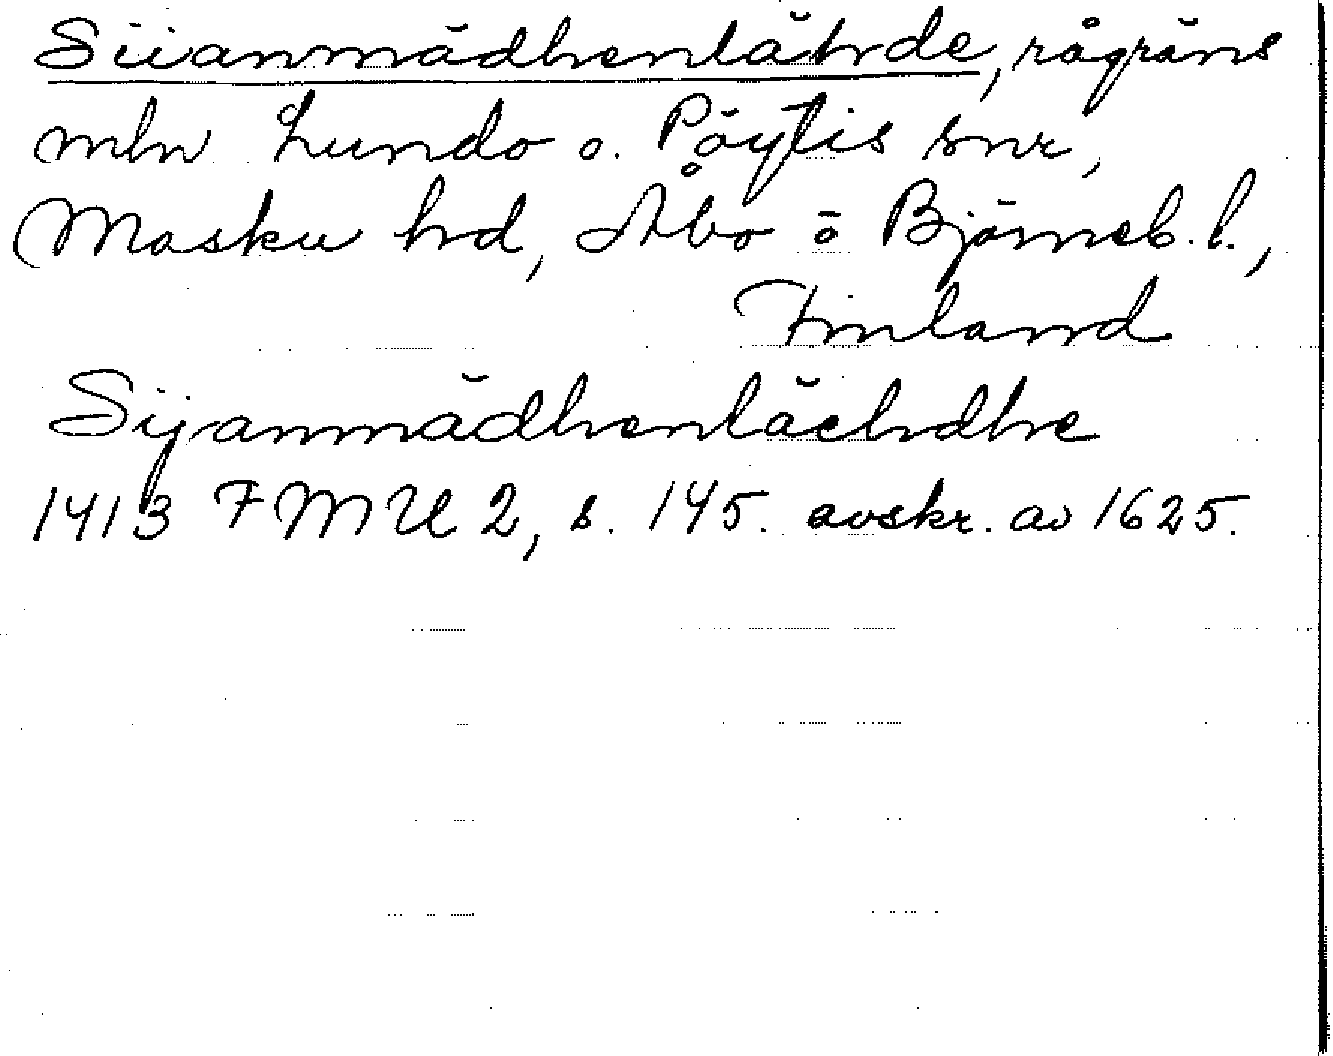 Siianmädhenlähde, rågräns
mln Lundo o. Pöytis snr,
Masku hd, Åbo o Björneb. l.,
Finland
Sijanmädhenläehdhe
1413 FMU 2, s. 145. avskr. av 1625.